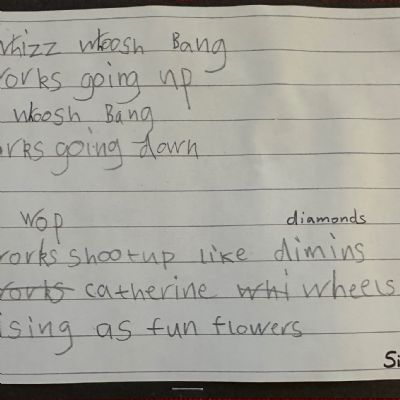 whizz whoosh Bang
orks going up
whoosh Bang
orks going down
wop
diamonds
orks shoot up like dimins
orks catherine whi wheels
ising as fun flowers
Si